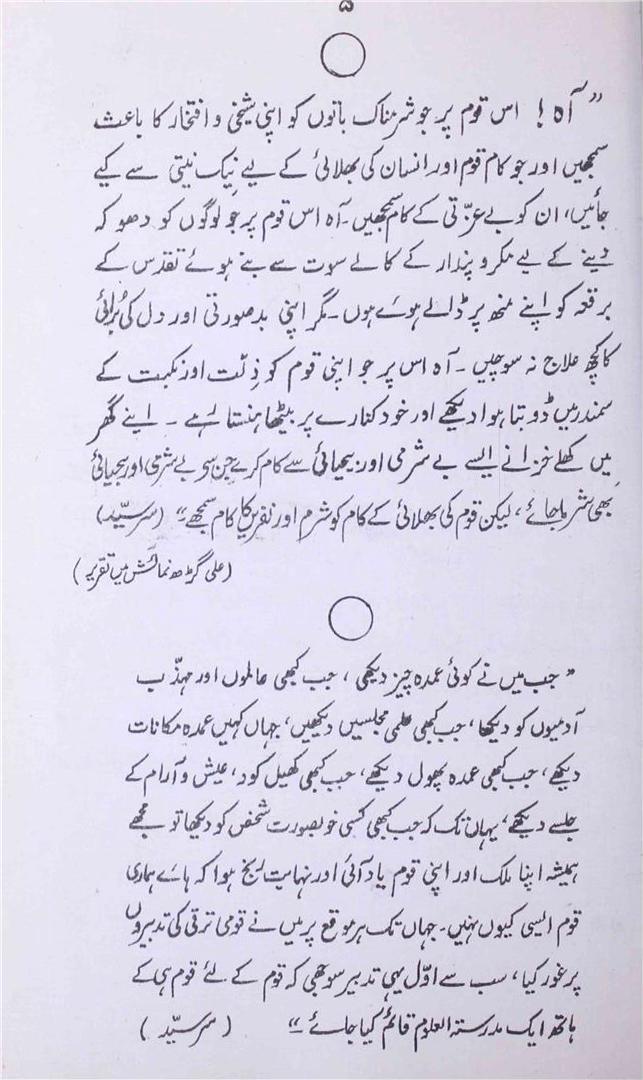 ۵
” آہ! اس قوم پر جو شرمناک باتوں کو اپنی شیخی و افتخار کا باعث
سمجھیں اور جو کام قوم اور انسان کی بھلائی کے لیے نیک نیتی سے کیے
جائیں، ان کو بے عزّتی کے کام سمجھیں۔ آہ اس قوم پر جو لوگوں کو دھوکہ
دینے کے لیے مکر و پندار کے کالے سوت سے بنے ہوئے تقدس کے
برقعہ کو اپنے منھ پر ڈالے ہوئے ہوں۔ مگر اپنی بدصورتی اور دل کی بُرائی
کا کچھ علاج نہ سوچیں۔ آہ اس پر جو اپنی قوم کو ذلّت اور نکبت کے
سمندر میں ڈوبتا ہوا دیکھے اور خود کنارے پر بیٹھا ہنستا رہے ۔ اپنے گھر
میں کھلے خزانے ایسے بے شرمی اور بیحیائی سے کام کرے جن سے بے شرمی اور بیحیائی
بھی شرما جائے، لیکن قوم کی بھلائی کے کام کو شرم اور نفریں کا کام سمجھے۔“ (سرسیّد)
(علی گڑھ نمائش میں تقریر)
” جب میں نے کوئی عمدہ چیز دیکھی، جب کبھی عالموں اور مہذّب
آدمیوں کو دیکھا، جب کبھی علمی مجلسیں دیکھیں، جہاں کہیں عمدہ مکانات
دیکھے، جب کبھی عمدہ پھول دیکھے، جب کبھی کھیل کود، عیش و آرام کے
جلسے دیکھے، یہاں تک کہ جب کبھی کسی خوبصورت شخص کو دیکھا تو مجھے
ہمیشہ اپنا ملک اور اپنی قوم یاد آئی اور نہایت رنج ہوا کہ ہائے ہماری
قوم ایسی کیوں نہیں۔ جہاں تک ہر موقع پر میں نے قومی ترقی کی تدبیروں
پر غور کیا، سب سے اوّل یہی تدبیر سوجھی کہ قوم کے لئے قوم ہی کے
ہاتھ ایک مدرستہ العلوم قائم کیا جائے ۔“ (سرسیّد)